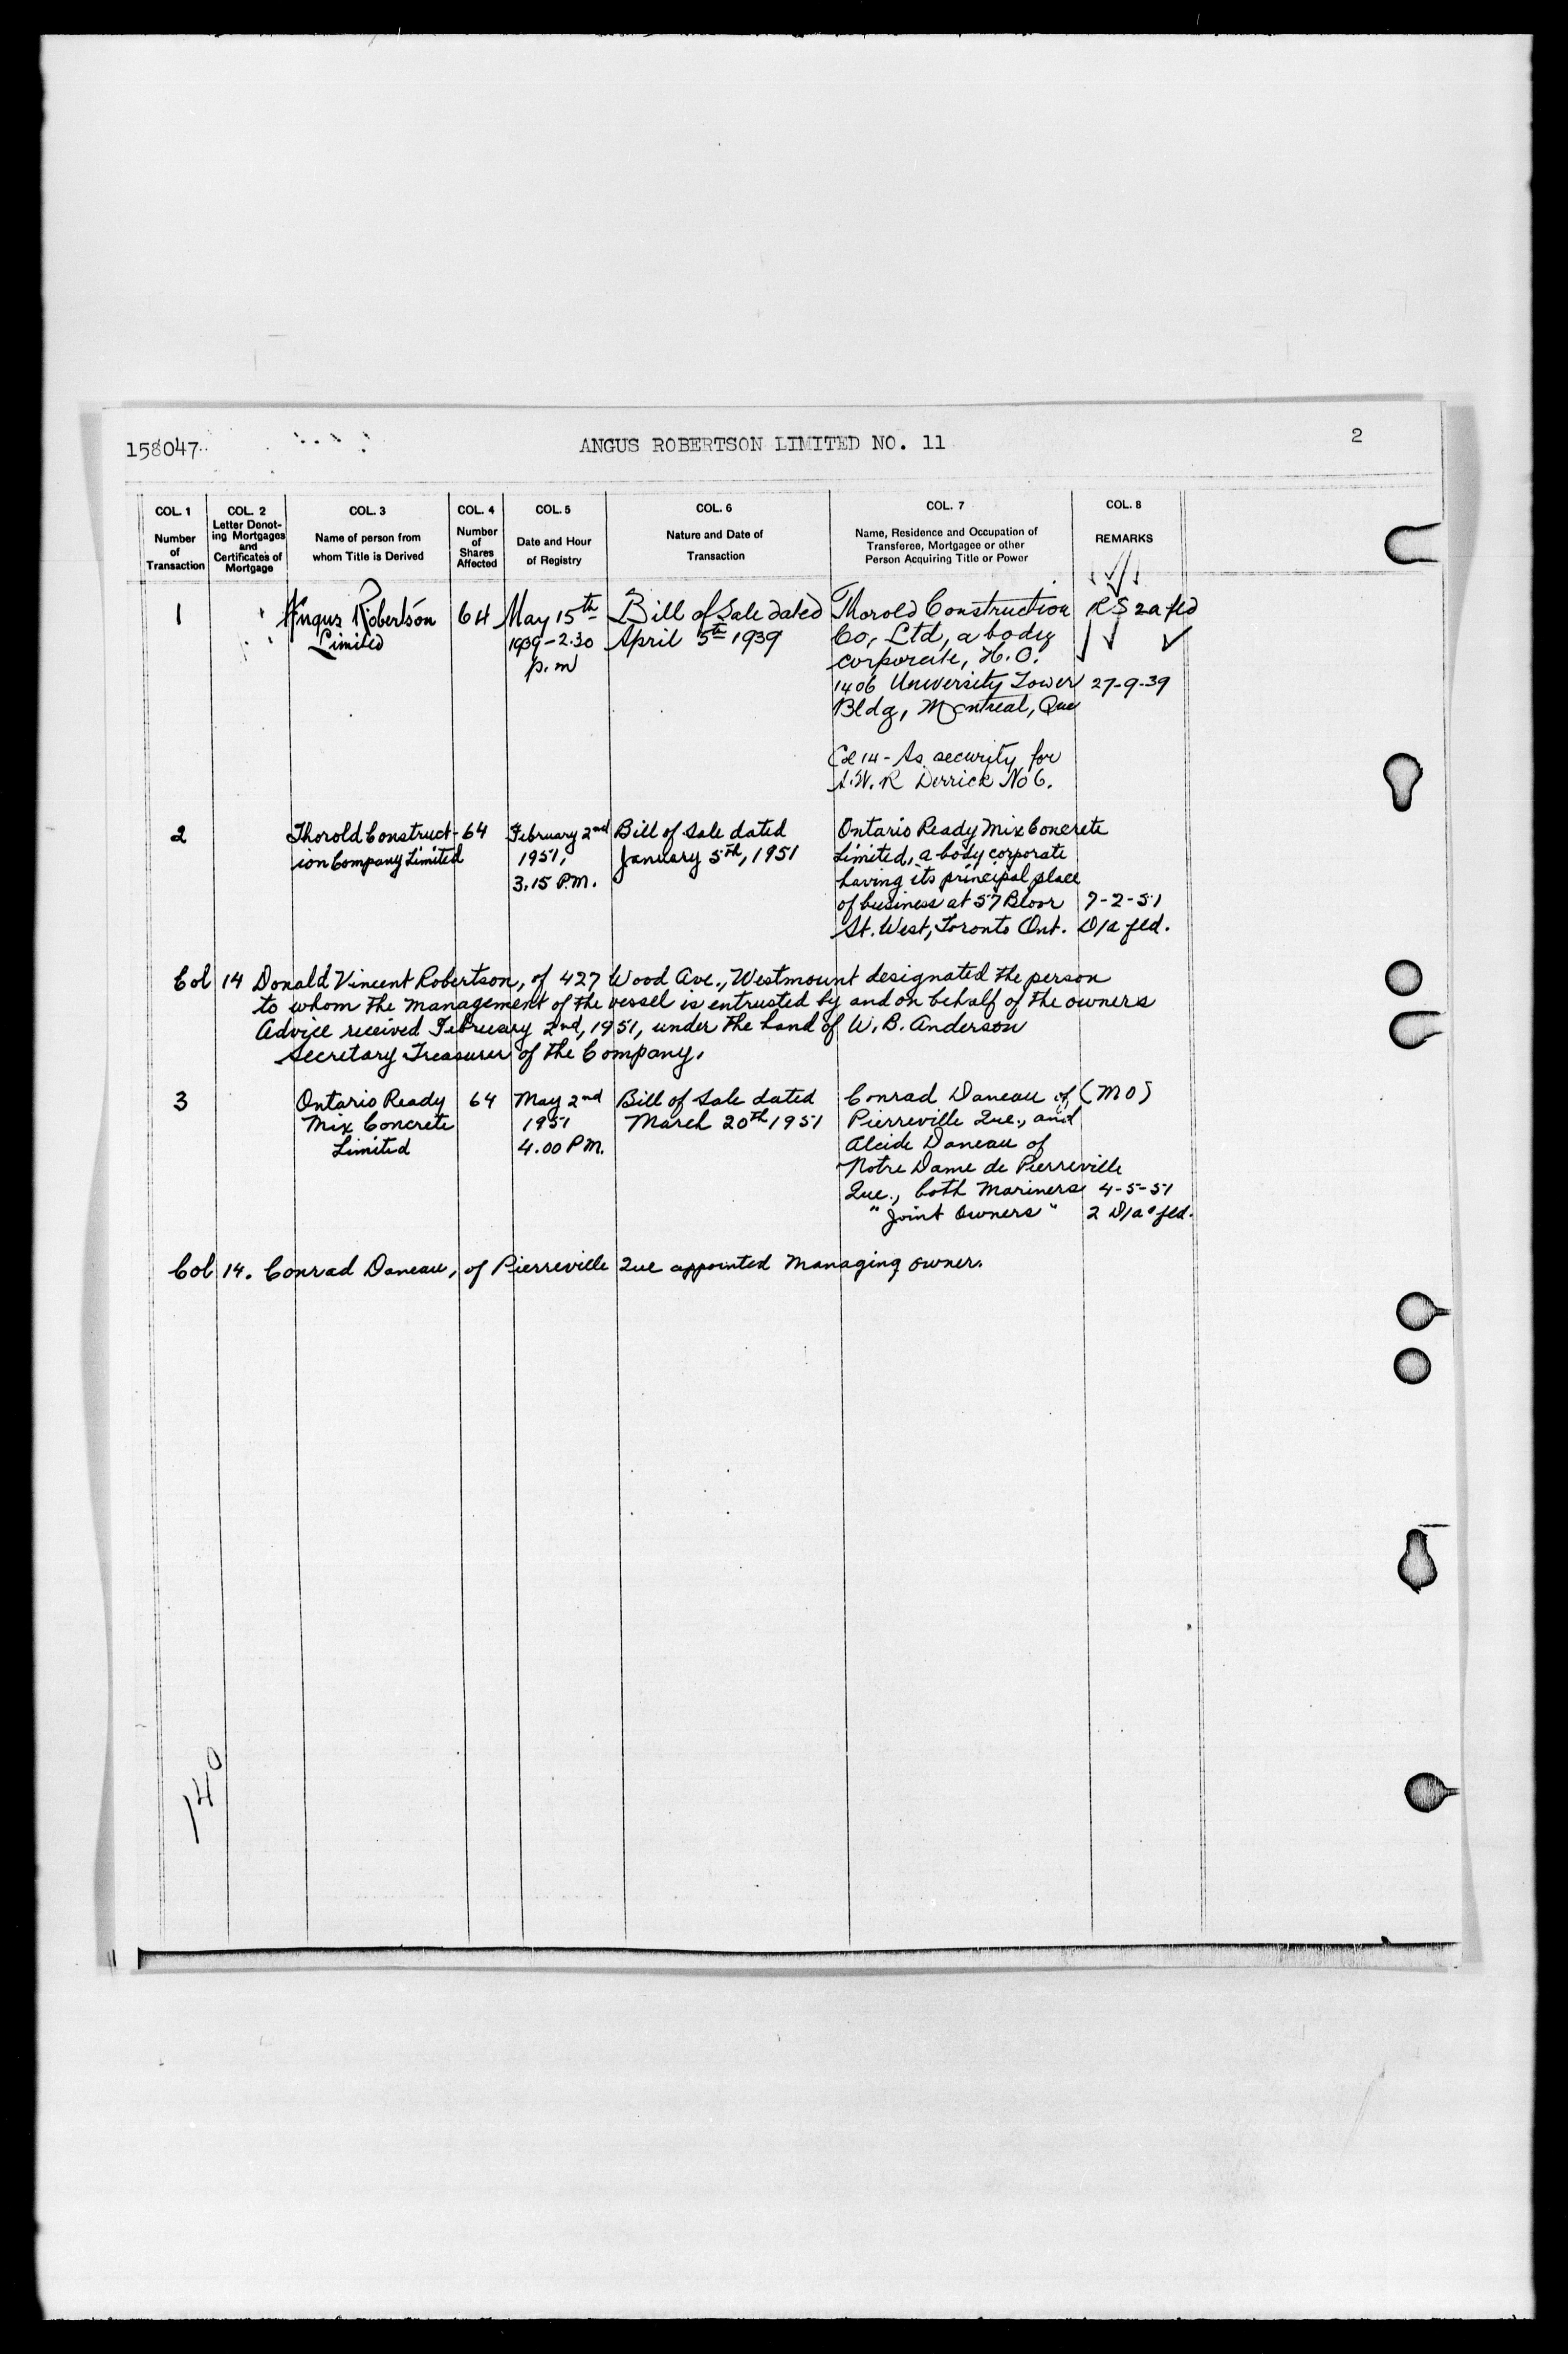 158047
ANGUS ROBERTSON LIMITED NO. 11
2
COL. 1
Number
of
Transaction
COL. 2
Letter Denot-
ing Mortgages
and
Certificates of
Mortgage
COL. 3
Name of person from
whom Title is Derived
COL. 4
Number
of
Shares
Affected
COL. 5
Date and Hour
of Registry
COL. 6
Nature and Date of
Transaction
COL. 7
Name, Residence and Occupation of
Transferee, Mortgagee or other
Person Acquiring Title or Power
COL. 8
REMARKS
1
Angus Robertson
Limited
64
May 15th
1939-2.30
p.m
Bill of Sale dated
April 5th 1939
Thorold Construction
Co, Ltd, a body
corporate, H.O.
1406 University Tower
Bldg, Montreal, Que
RS 2a fld
27-9-39
Col 14 - As security for
A.W.R Derrick No 6.
2
Thorold Construct-
ion Company Limited
64
February 2nd
1951,
3.15 P.M.
Bill of Sale dated
January 5th, 1951
Ontario Ready Mix Concrete
Limited, a body corporate
having its principal place
of business at 57 Bloor
St. West, Toronto Ont.
7-2-51
D/a fld.
Col 14 Donald Vincent Robertson, of 427 Wood Ave., Westmount designated the person
to whom the management of the vessel is entrusted by and on behalf of the owners
Advice received February 2nd, 1951, under the hand of W. B. Anderson
Secretary Treasurer of the Company.
3
Ontario Ready
Mix Concrete
Limited
64
May 2nd
1951
4.00 P.M.
Bill of Sale dated
March 20th 1951
Conrad Daneau of
Pierreville Que., and
Alcide Daneau of
Notre Dame de Pierreville
Que., both Mariners
"Joint Owners"
(MO)
4-5-51
2 D/a's fld.
Col 14. Conrad Daneau, of Pierreville Que appointed Managing owner.
140